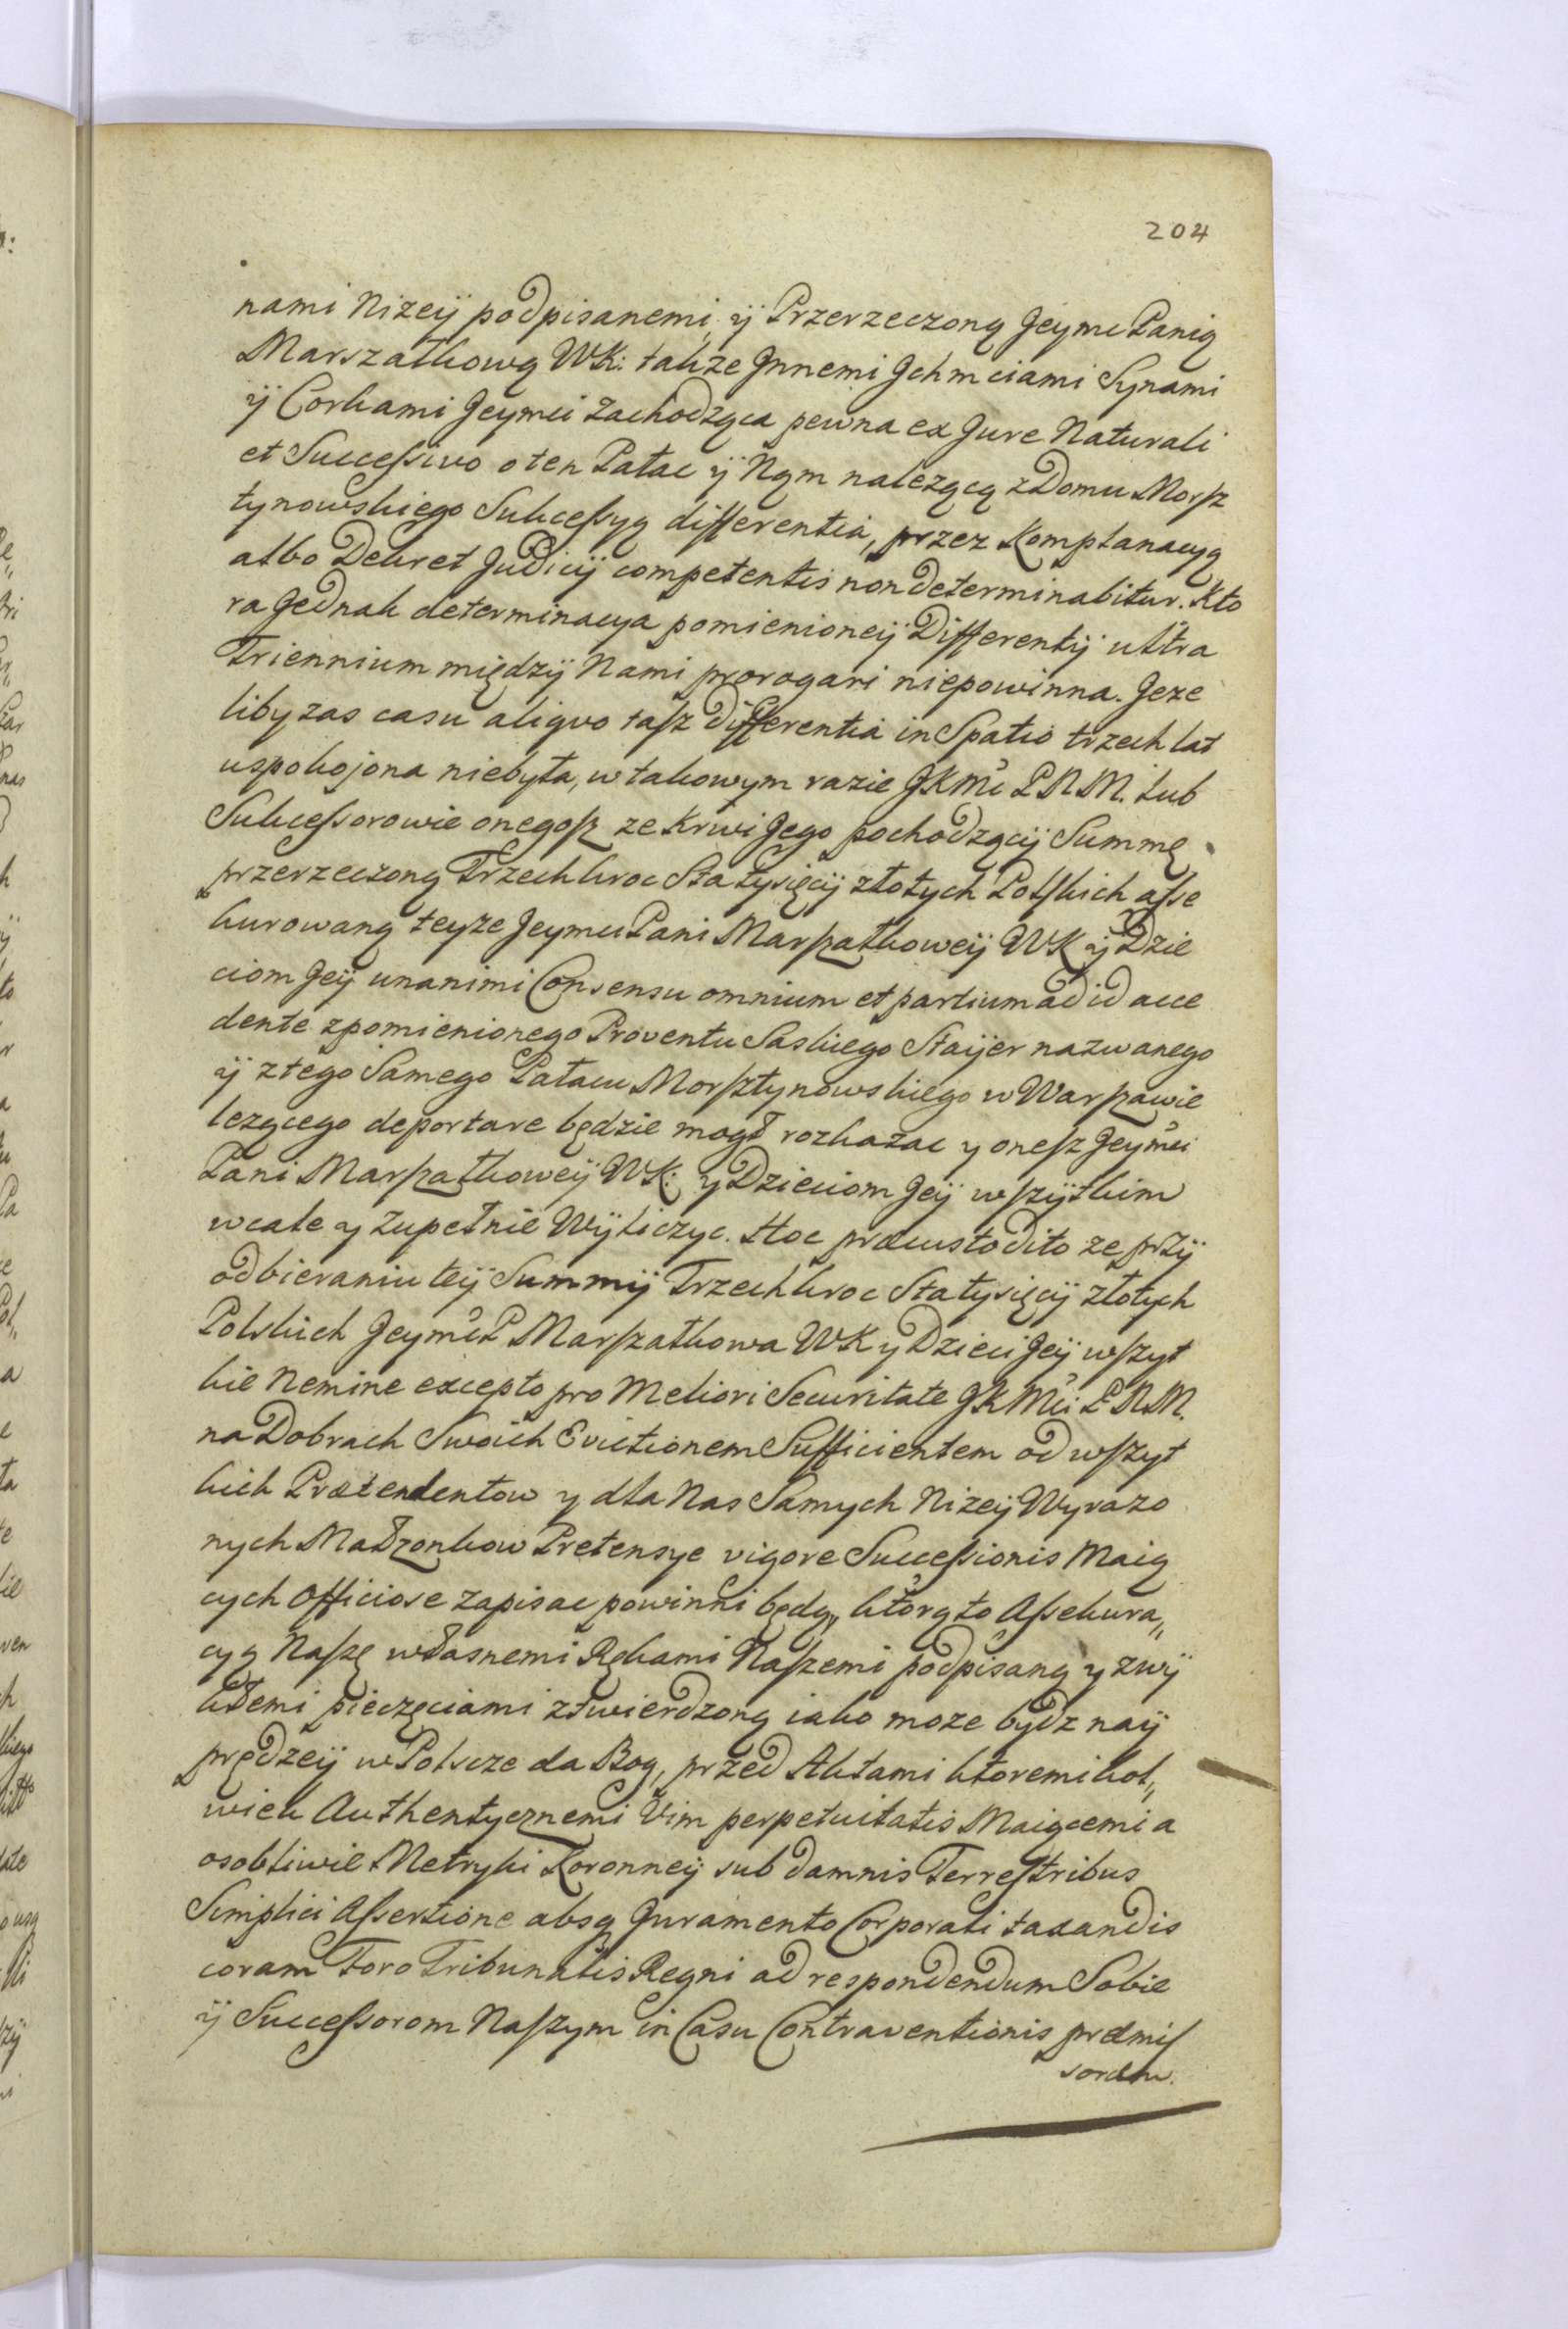 204
nami Nizeÿ podpisanemi, ÿ Przerzeczoną Jeyme Panią
Marszałkową WK: takze Jnnemi Jchmciami Synami
ÿ Corkami Jeymci zachodząca pewna ex Jure Naturali
et Successivo o ten Pałac ÿ Nąm nalezącą z Domu Morsz
tynowskiego Sukcessyą differentia, przez Komplanacyą
albo Dekret Judicij competentis non determinabitur. Kto
ra Jednak determinacya pomienioneÿ Differentÿ ultra
Triennium międzÿ Nami prorogari niepowinna. Jeze
liby zas casu aliquo tasz differentia in Spatio trzech lat
uspokojona niebyła, w takowym razie JKMc PNM. lub
Sukcessorowie onegosz ze Krwi Jego pochodzącÿ Summę
przerzeczoną Trzechkroc Sta tysięcÿ złotych Polskich asse
kurowaną teyze Jeymci Pani Marszałkoweÿ WK ÿ Dzie
ciom Jeÿ unanimi Consensu omnium et partium ad id acce
dente z pomienionego Proventu Saskiego Staÿer nazwanego
ÿ z tego Samego Pałacu Morsztynowskiego w Warszawie
lezącego deportare będzie mogł rozkazac y onesz Jeymci
Pani Marszałkoweÿ WK: y Dzieciom Jeÿ wszÿtkim
wcale y zupełnie Wÿliczyc. Hoc præcustodito ze przÿ
odbieraniu teÿ Summÿ Trzechkroc Sta tysięcÿ złotych
Polskich Jeymc P Marszałkowa WK y Dzieci Jeÿ wszyt
kie Nemine excepto pro Meliori Securitate JKMci PNM.
na Dobrach Swoich Evictionem Sufficientem od wszyt
kich Prætendentow y dla Nas Samych Nizeÿ Wyrazo
nych Małzonkow Pretensye vigore Successionis Maią
cych Officiose zapisac powinni będą, ktorą to Assekura„
cyą Naszę własnemi Rękami Naszemi podpisaną y zwÿ
kłemi pieczęciami ztwierdzoną iako moze bydz naÿ
prędzeÿ w Polscze da Bog, przed Aktami ktoremikol„
wiek Authentycznemi Vim perpetuitatis Maiącemi a
osobliwie Metryki Koronneÿ sub damnis Terrestribus
Simplici Assertione absq Juramento Corporali taxandis
coram Foro Tribunalis Regni ad respondendum Sobie
ÿ Successorom Naszym in Casu Contraventionis præmis
sorum.